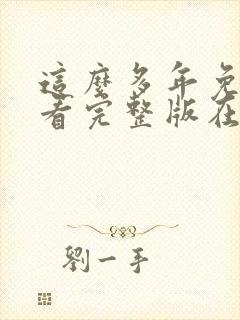 這麼多年免
看完整版在
劉一手